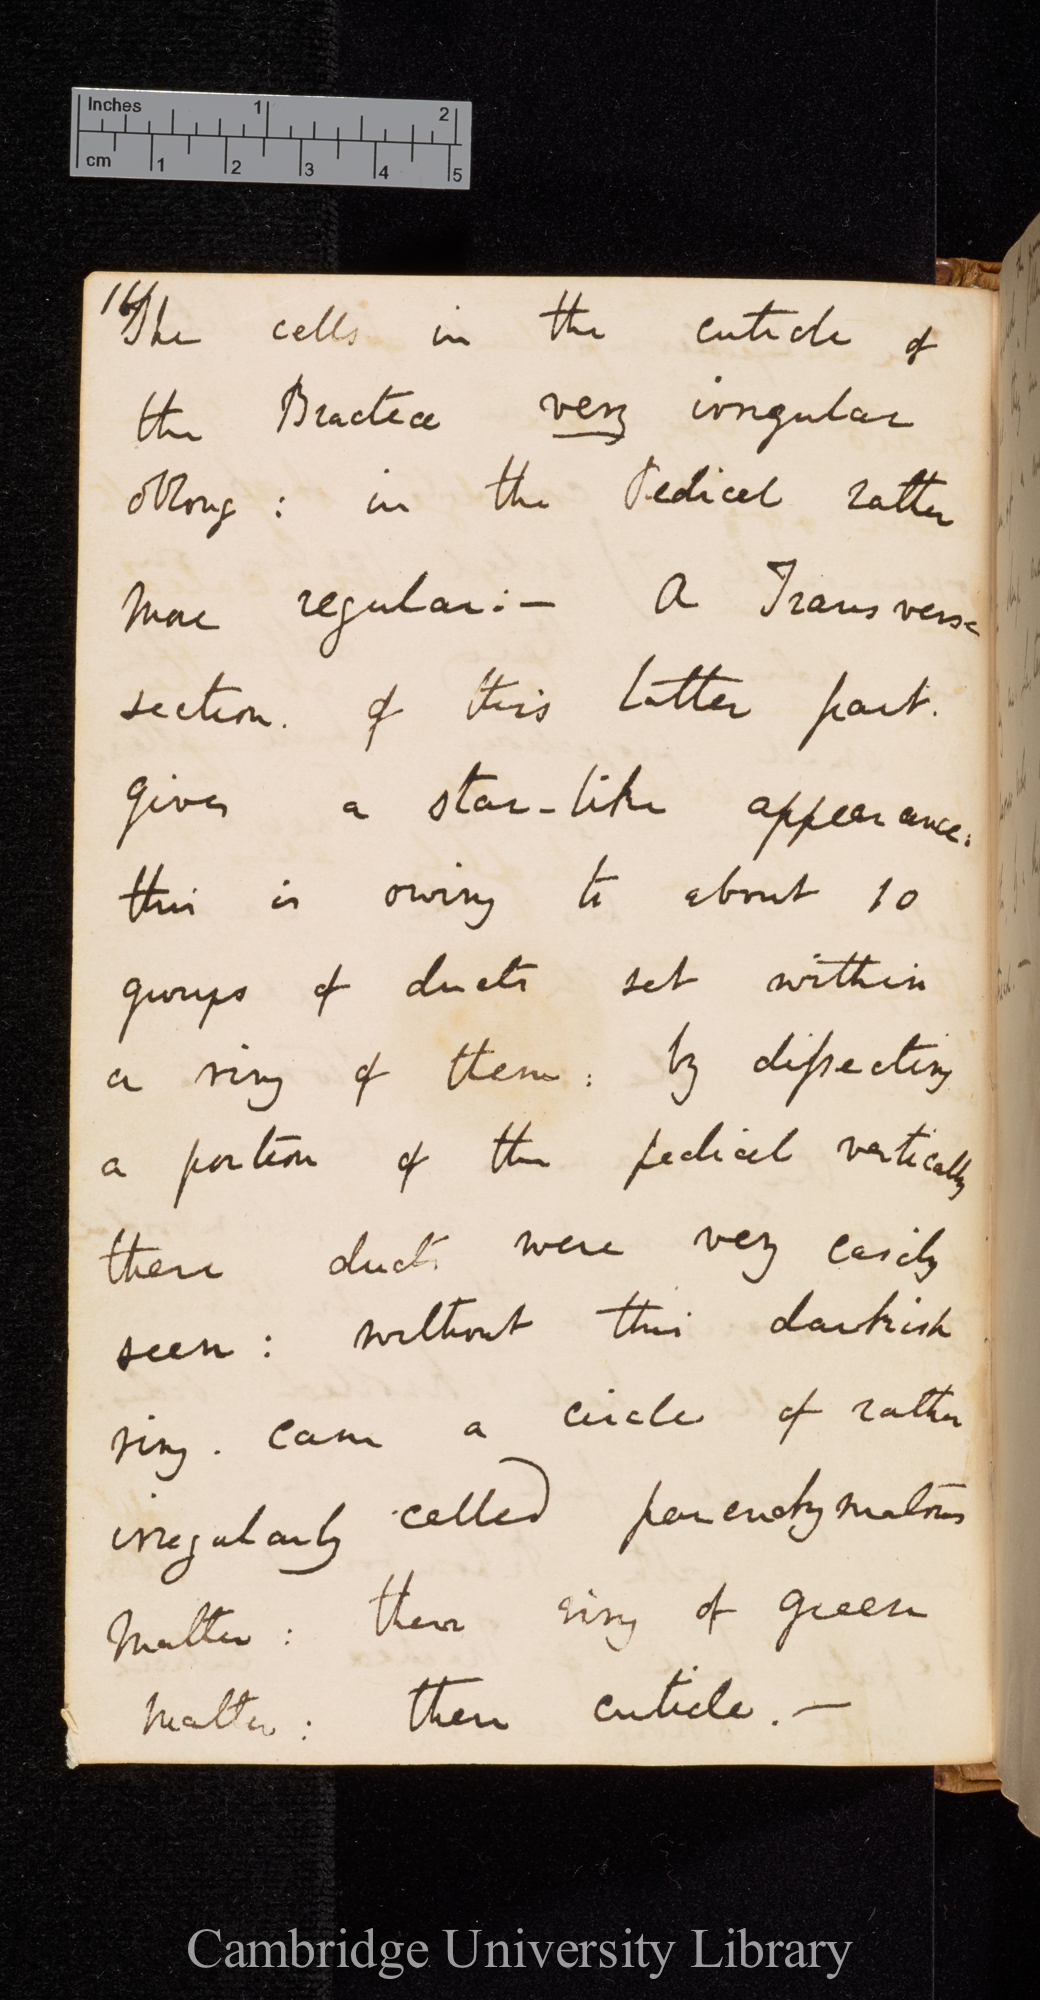 Inches 1 2
cm 1 2 3 4 5
16
The cells in the cuticle of
the Bracteæ very irregular
oblong : in the Pedicel rather
more regular :— A Transverse
section. of this latter part.
gives a star-like appearance:
this is owing to about 10
groups of ducts set within
a ring of them : by dissecting
a portion of the pedicel vertically
these ducts were very easily
seen : without this darkish
ring . came a circle of rather
irregularly celled parenchymatous
matter : then ring of green
matter : then cuticle . —
Cambridge University Library